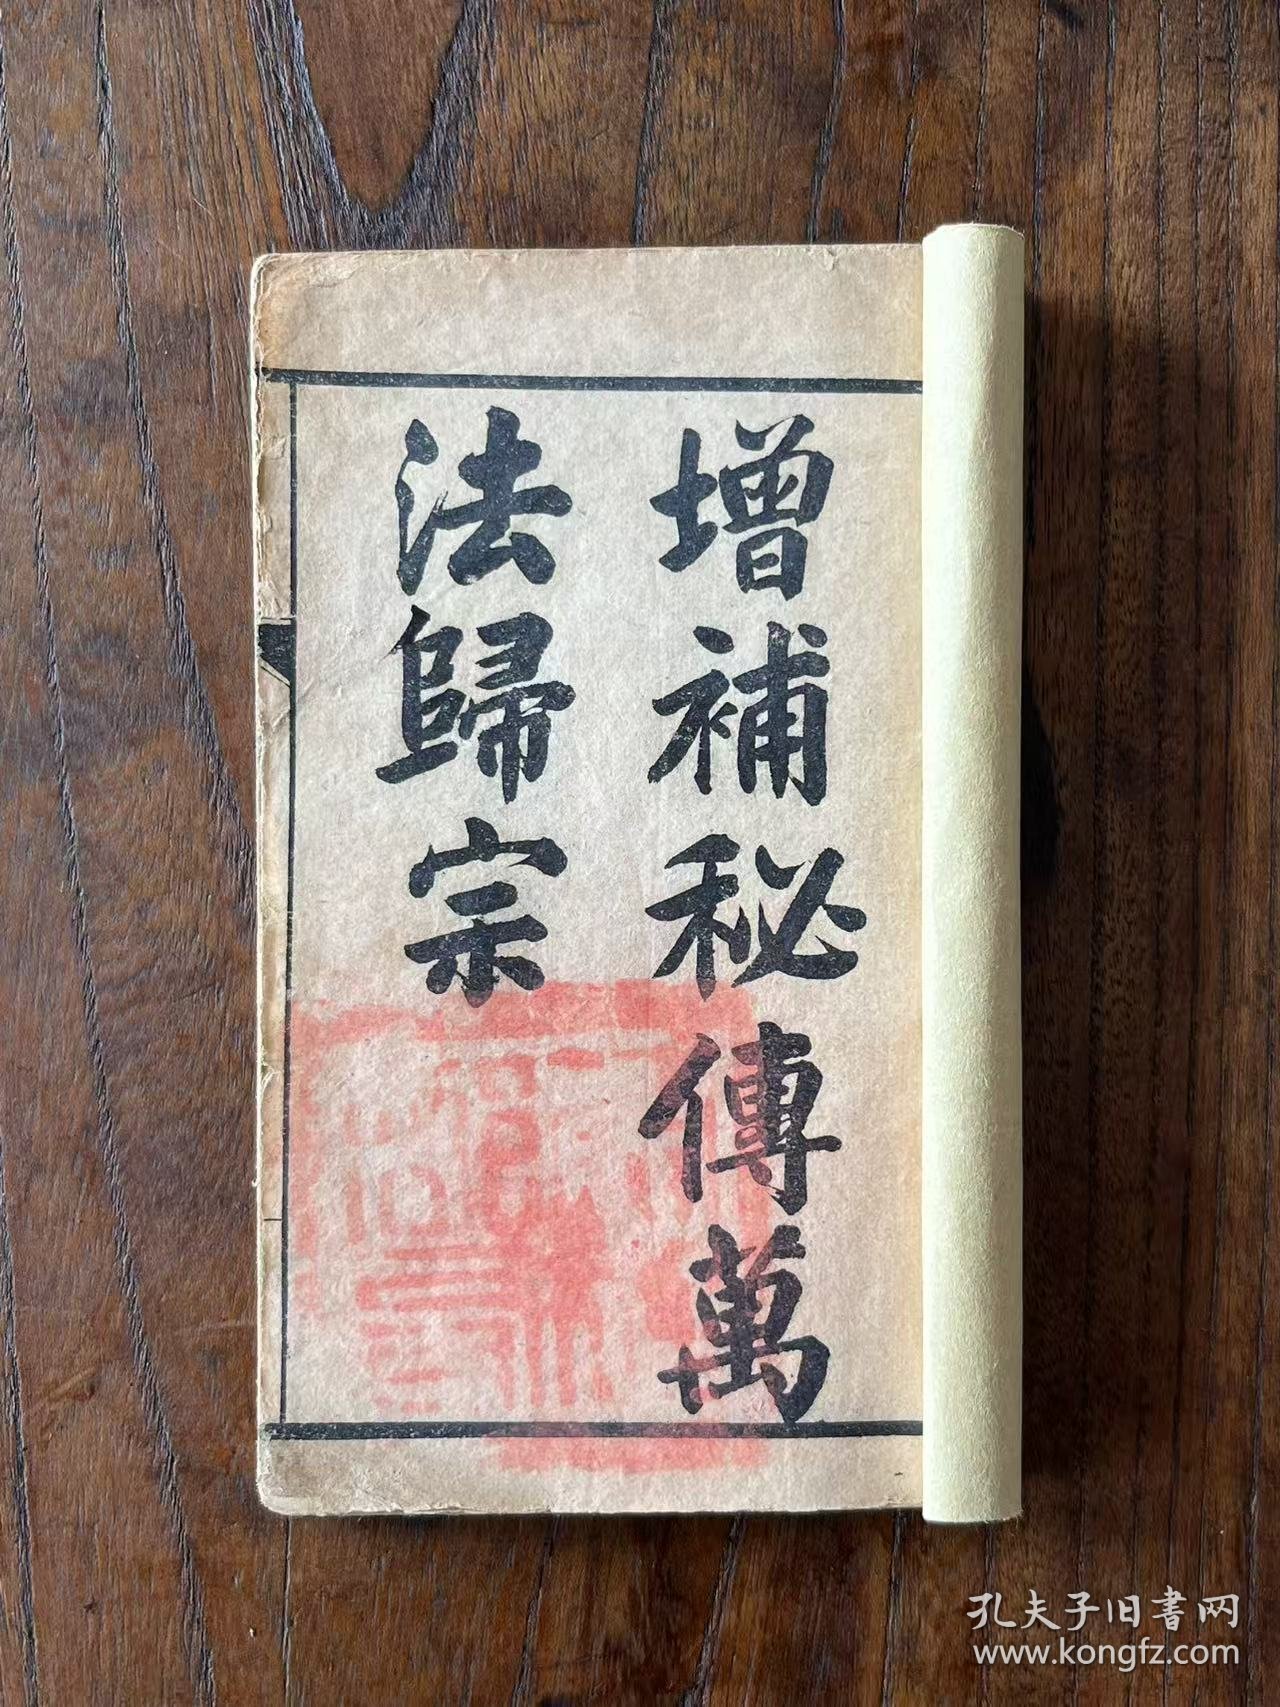 增補秘傳萬
法歸宗
孔夫子旧書网
www.kongfz.com